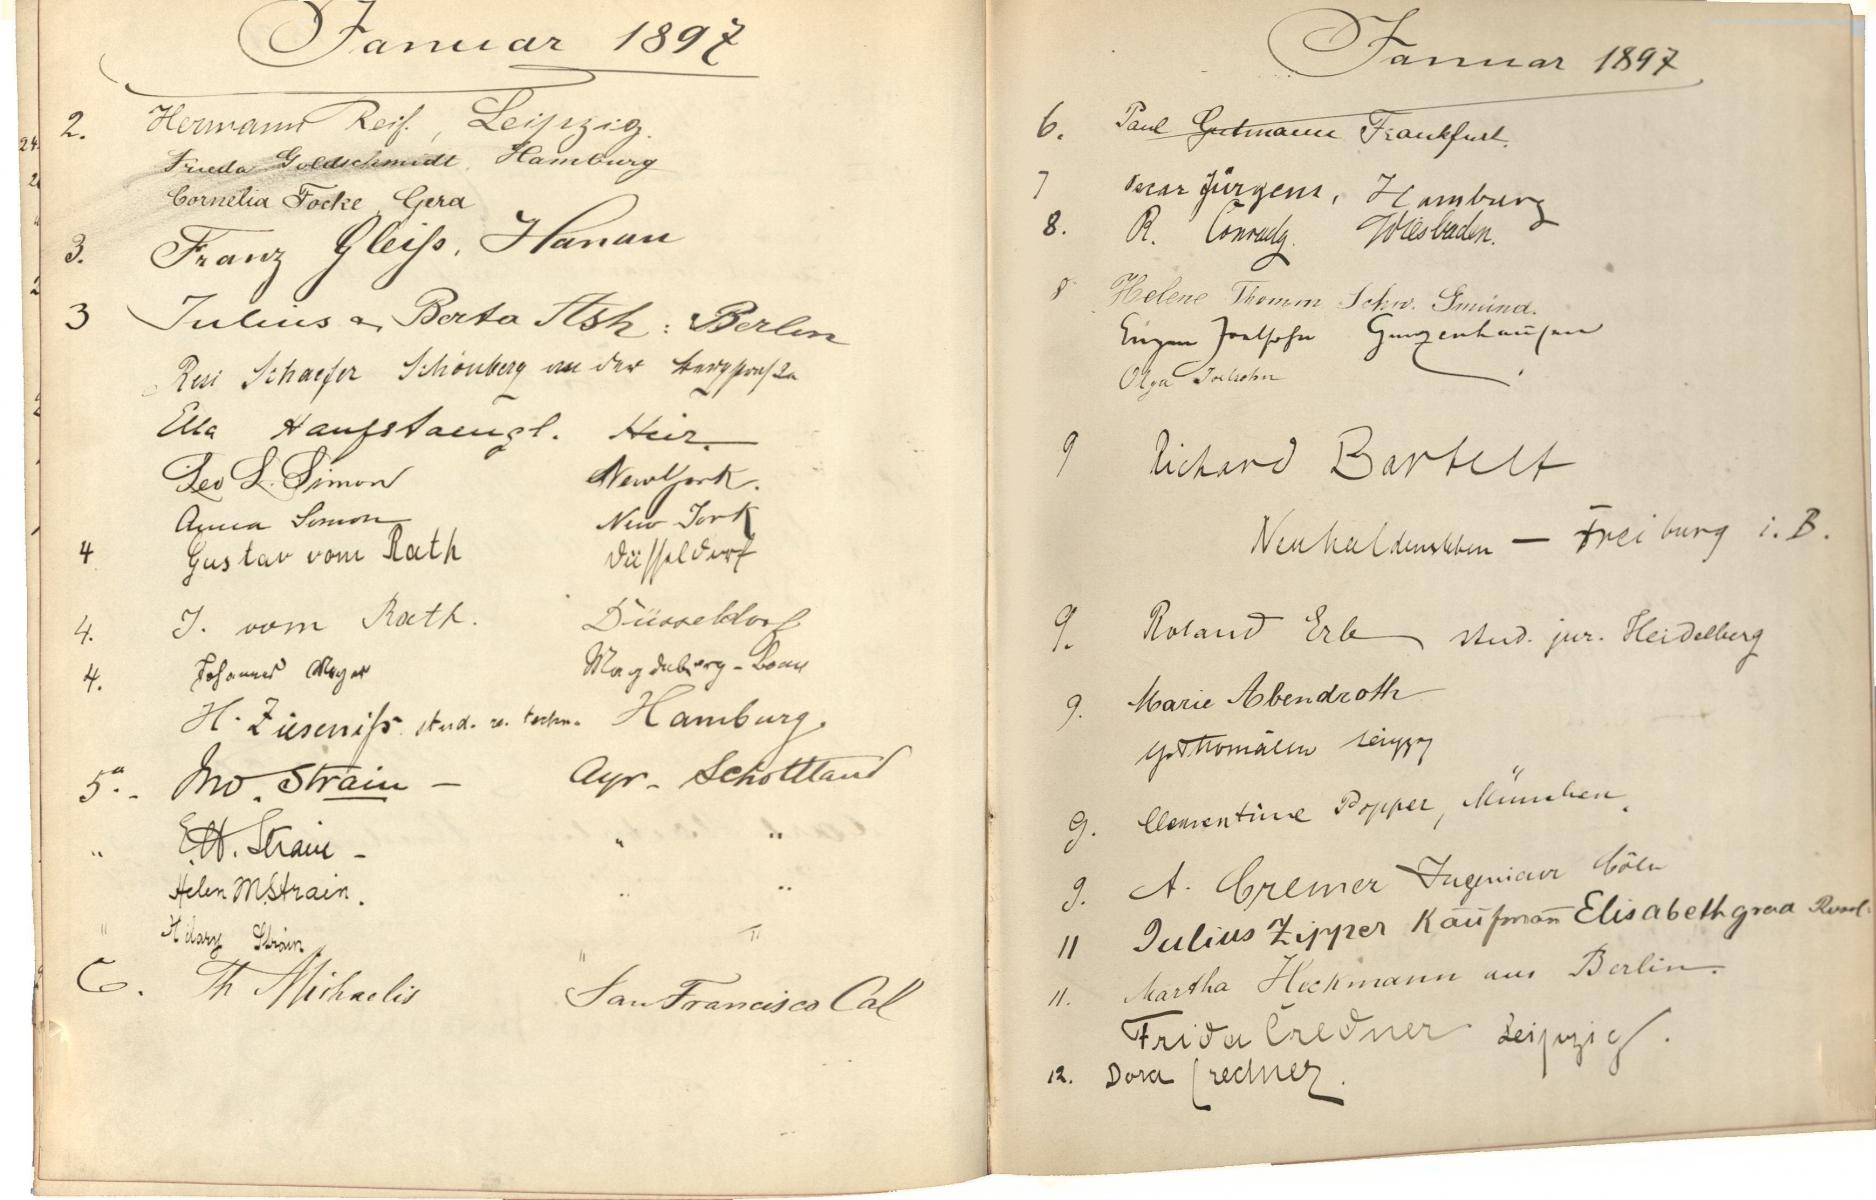 Januar 1897
2. Hermann Reif, Leipzig.
Frieda Goldschmidt, Hamburg
Cornelia Focke Gera
3. Franz Gleiß, Hanau
3 Julius & Berta Ash: Berlin
Resi Schaefer Schönberg an der Bergstraße
Ella Hanfstaengl. Hier.
Leo L. Simon New York.
Anna Simon New York
4 Gustav vom Rath Düsseldorf
4. J. vom Rath. Düsseldorf
4. Johannes Meyer Magdeburg-
H. Zieseniß stud. re. techn. Hamburg.
5. Jno. Strain - Ayr - Schottland
" E.H. Strain - " "
Helen M. Strain. " "
" Hilary Strain " "
6. Th Michaelis San Francisco Cal
Januar 1897
6. Paul Gutmann Frankfurt.
7 Oscar Jürgens, Hamburg
8. R. Conrady. Wiesbaden.
8 Helene Thomm Schw. Gmünd.
Eugen Joelsohn Gunzenhausen
Olga Joelsohn
9 Richard Bartelt
Neuhaldensleben — Freiburg i. B.
9. Roland Erb stud. jur. Heidelberg
9. Marie Abendroth
Leipzig
9. Clementine Popper, München.
9. A. Cremer Ingenieur Cöln
11 Julius Zipper Kaufmann Elisabethgrad Russl.
11. Martha Heckmann aus Berlin.
Frida Credner Leipzig.
12. Dora Credner.